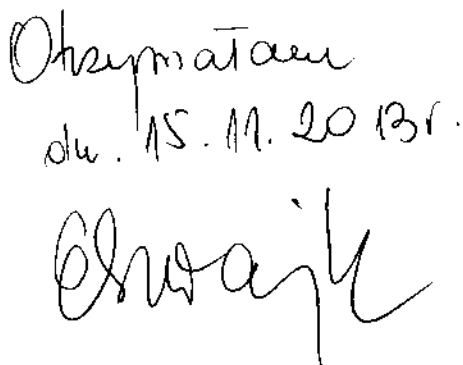 Otrzymałam
dn. 15.11.2013r.